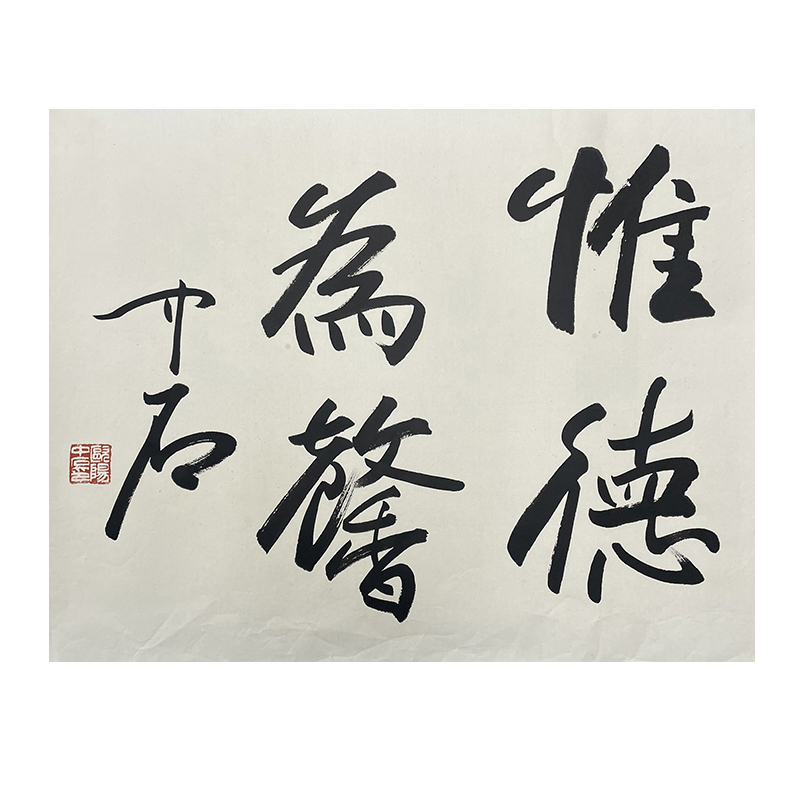 惟德
為馨
中石
歐陽中石鉩